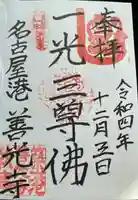 奉拝
令和四年
十二月五日
一光三尊佛
名古屋港 善光寺